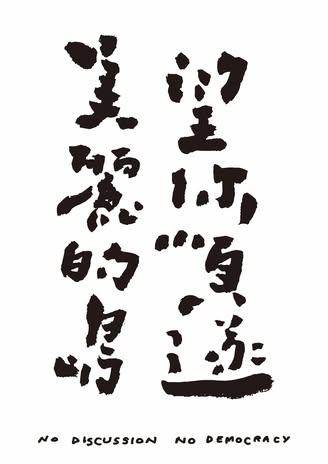 望你順遂
美麗的島
NO DISCUSSION NO DEMOCRACY